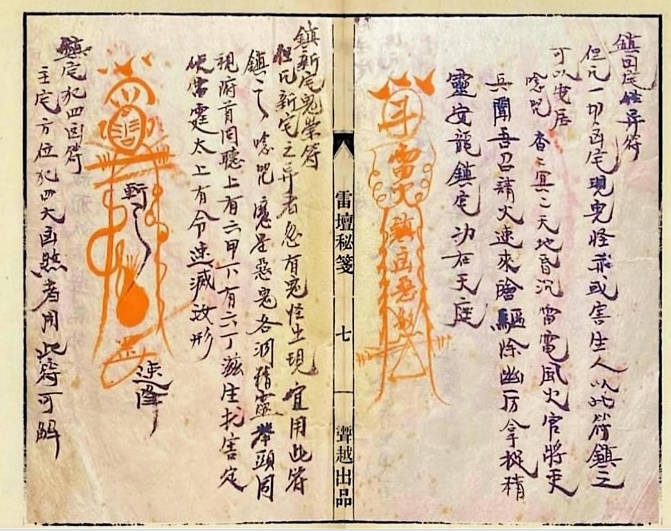 鎮凶宅怪异符
但凡一切凶宅現鬼怪祟或害生人以此符鎮之
可以安居
唸咒 杳杳冥冥天地昏沉雷電風火官將吏
兵聞吾召請火速來臨驅除幽厉拿捉精
靈安龍鎮宅功在天庭
斗
雷火鎮宅
雷壇秘箋
七
灊越出品
鎮新宅鬼祟符
但凡新宅之异者忽有鬼怪出現宜用此符
鎮之唸咒魔是惡鬼各洞精靈舉頭同
視府首同聽上有六甲下有六丁滋生扎害定
使雷霆太上有令速滅汝形
斬
速降
鎮宅犯四凶符
主宅方位犯四大凶煞者用此符可解